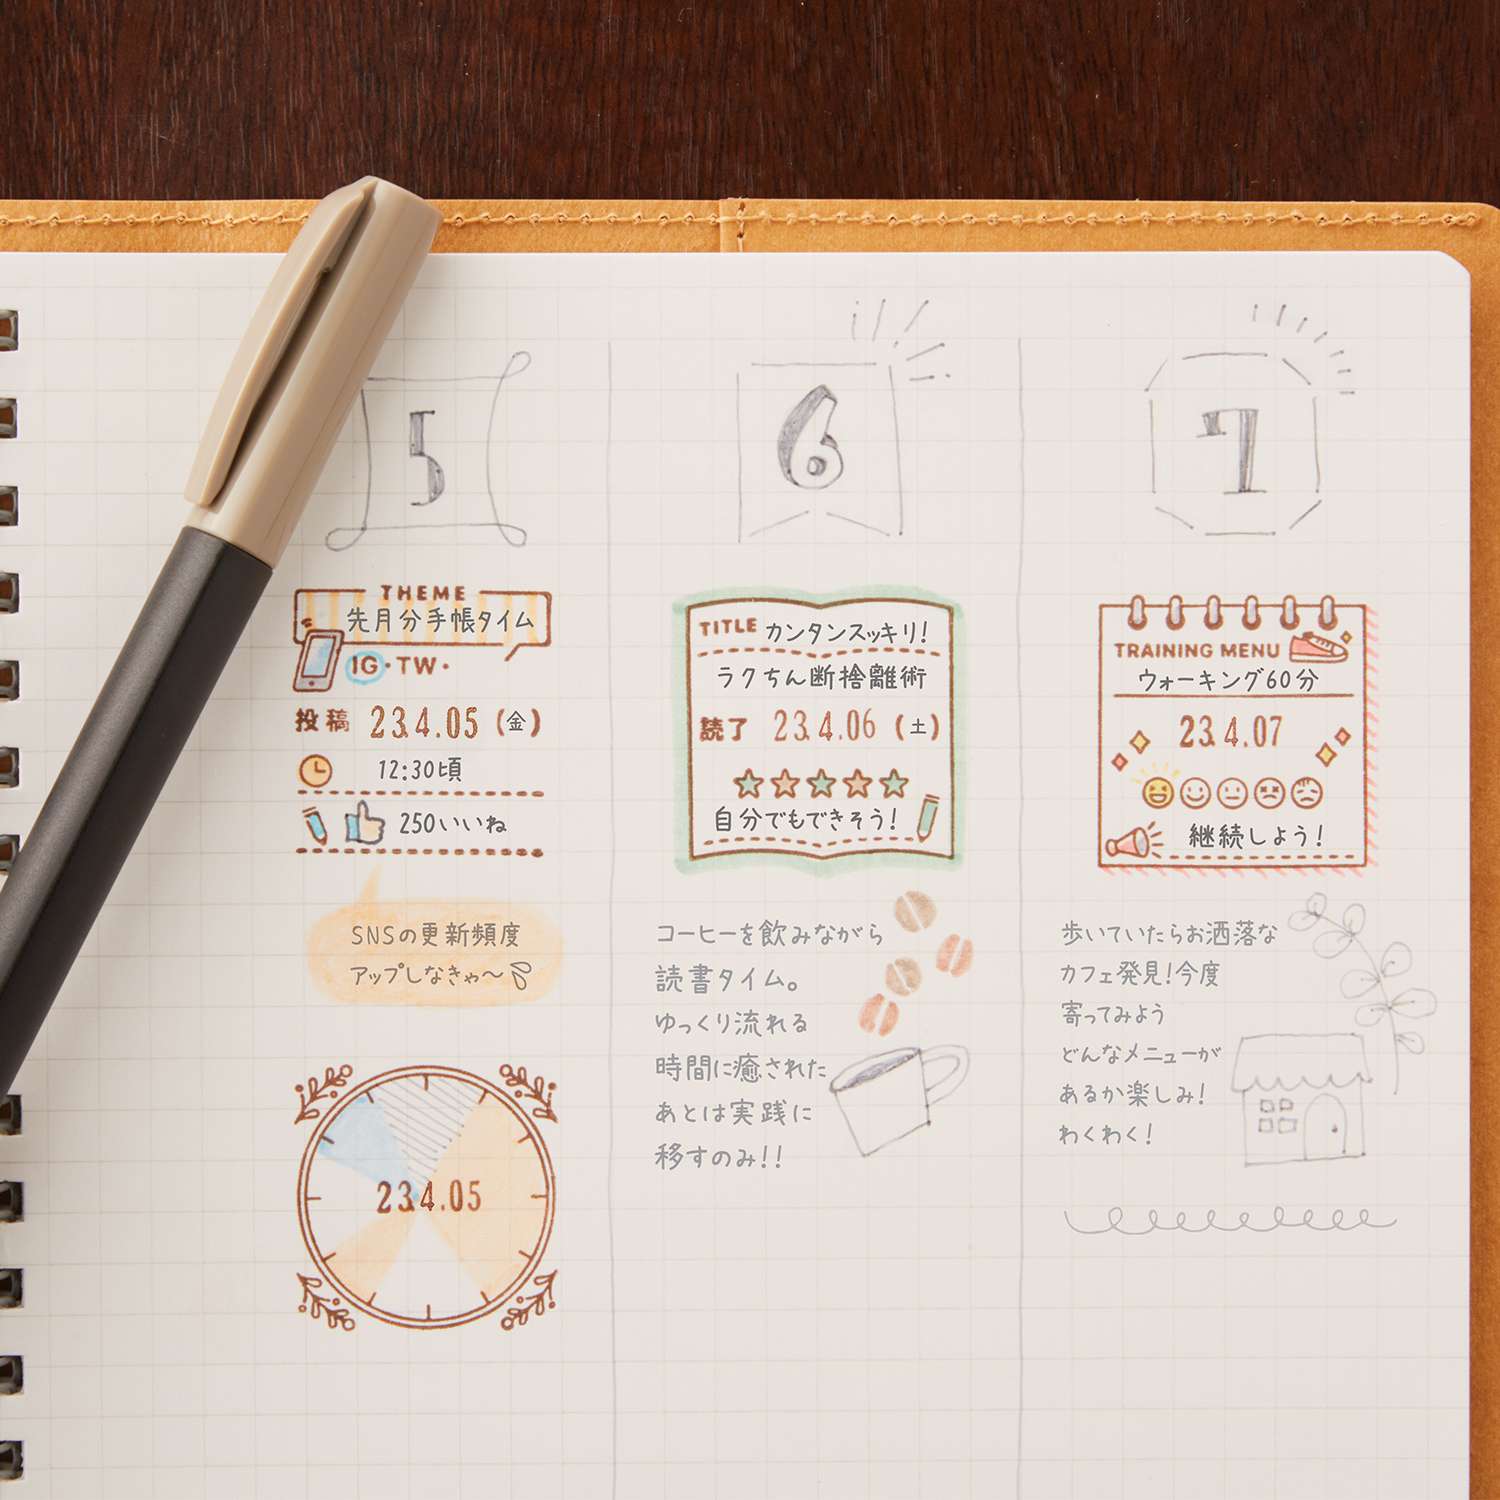 5
THEME
先月分手帳タイム
IG・TW・
投稿 23.4.05 (金)
12:30頃
250いいね
SNSの更新頻度
アップしなきゃ〜
23.4.05
6
TITLE カンタンスッキリ!
ラクちん断捨離術
読了 23.4.06 (土)
自分でもできそう!
コーヒーを飲みながら
読書タイム。
ゆっくり流れる
時間に癒された
あとは実践に
移すのみ!!
7
TRAINING MENU
ウォーキング60分
23.4.07
継続しよう!
歩いていたらお洒落な
カフェ発見!今度
寄ってみよう
どんなメニューが
あるか楽しみ!
わくわく!